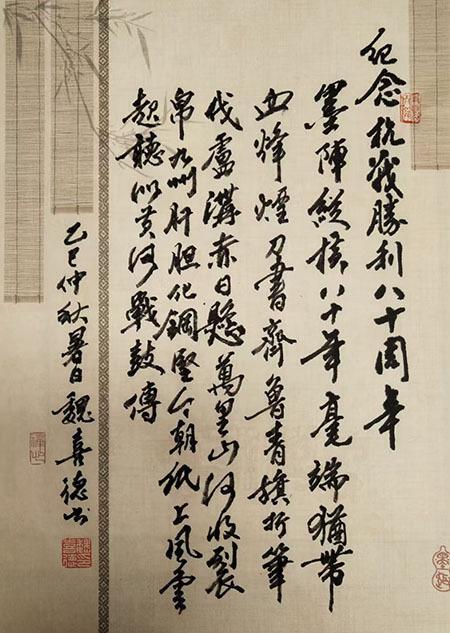 纪念抗戰勝利八十周年
墨陣縱橫八十年毫端猶帶
血烽煙刀書齊魯青旗折筆
伐盧溝赤日懸萬里山河收裂
帛九州肝胆化鋼堅今朝紙上風雲
起聽似黄河戰鼓傳
乙巳仲秋暑日魏喜德书